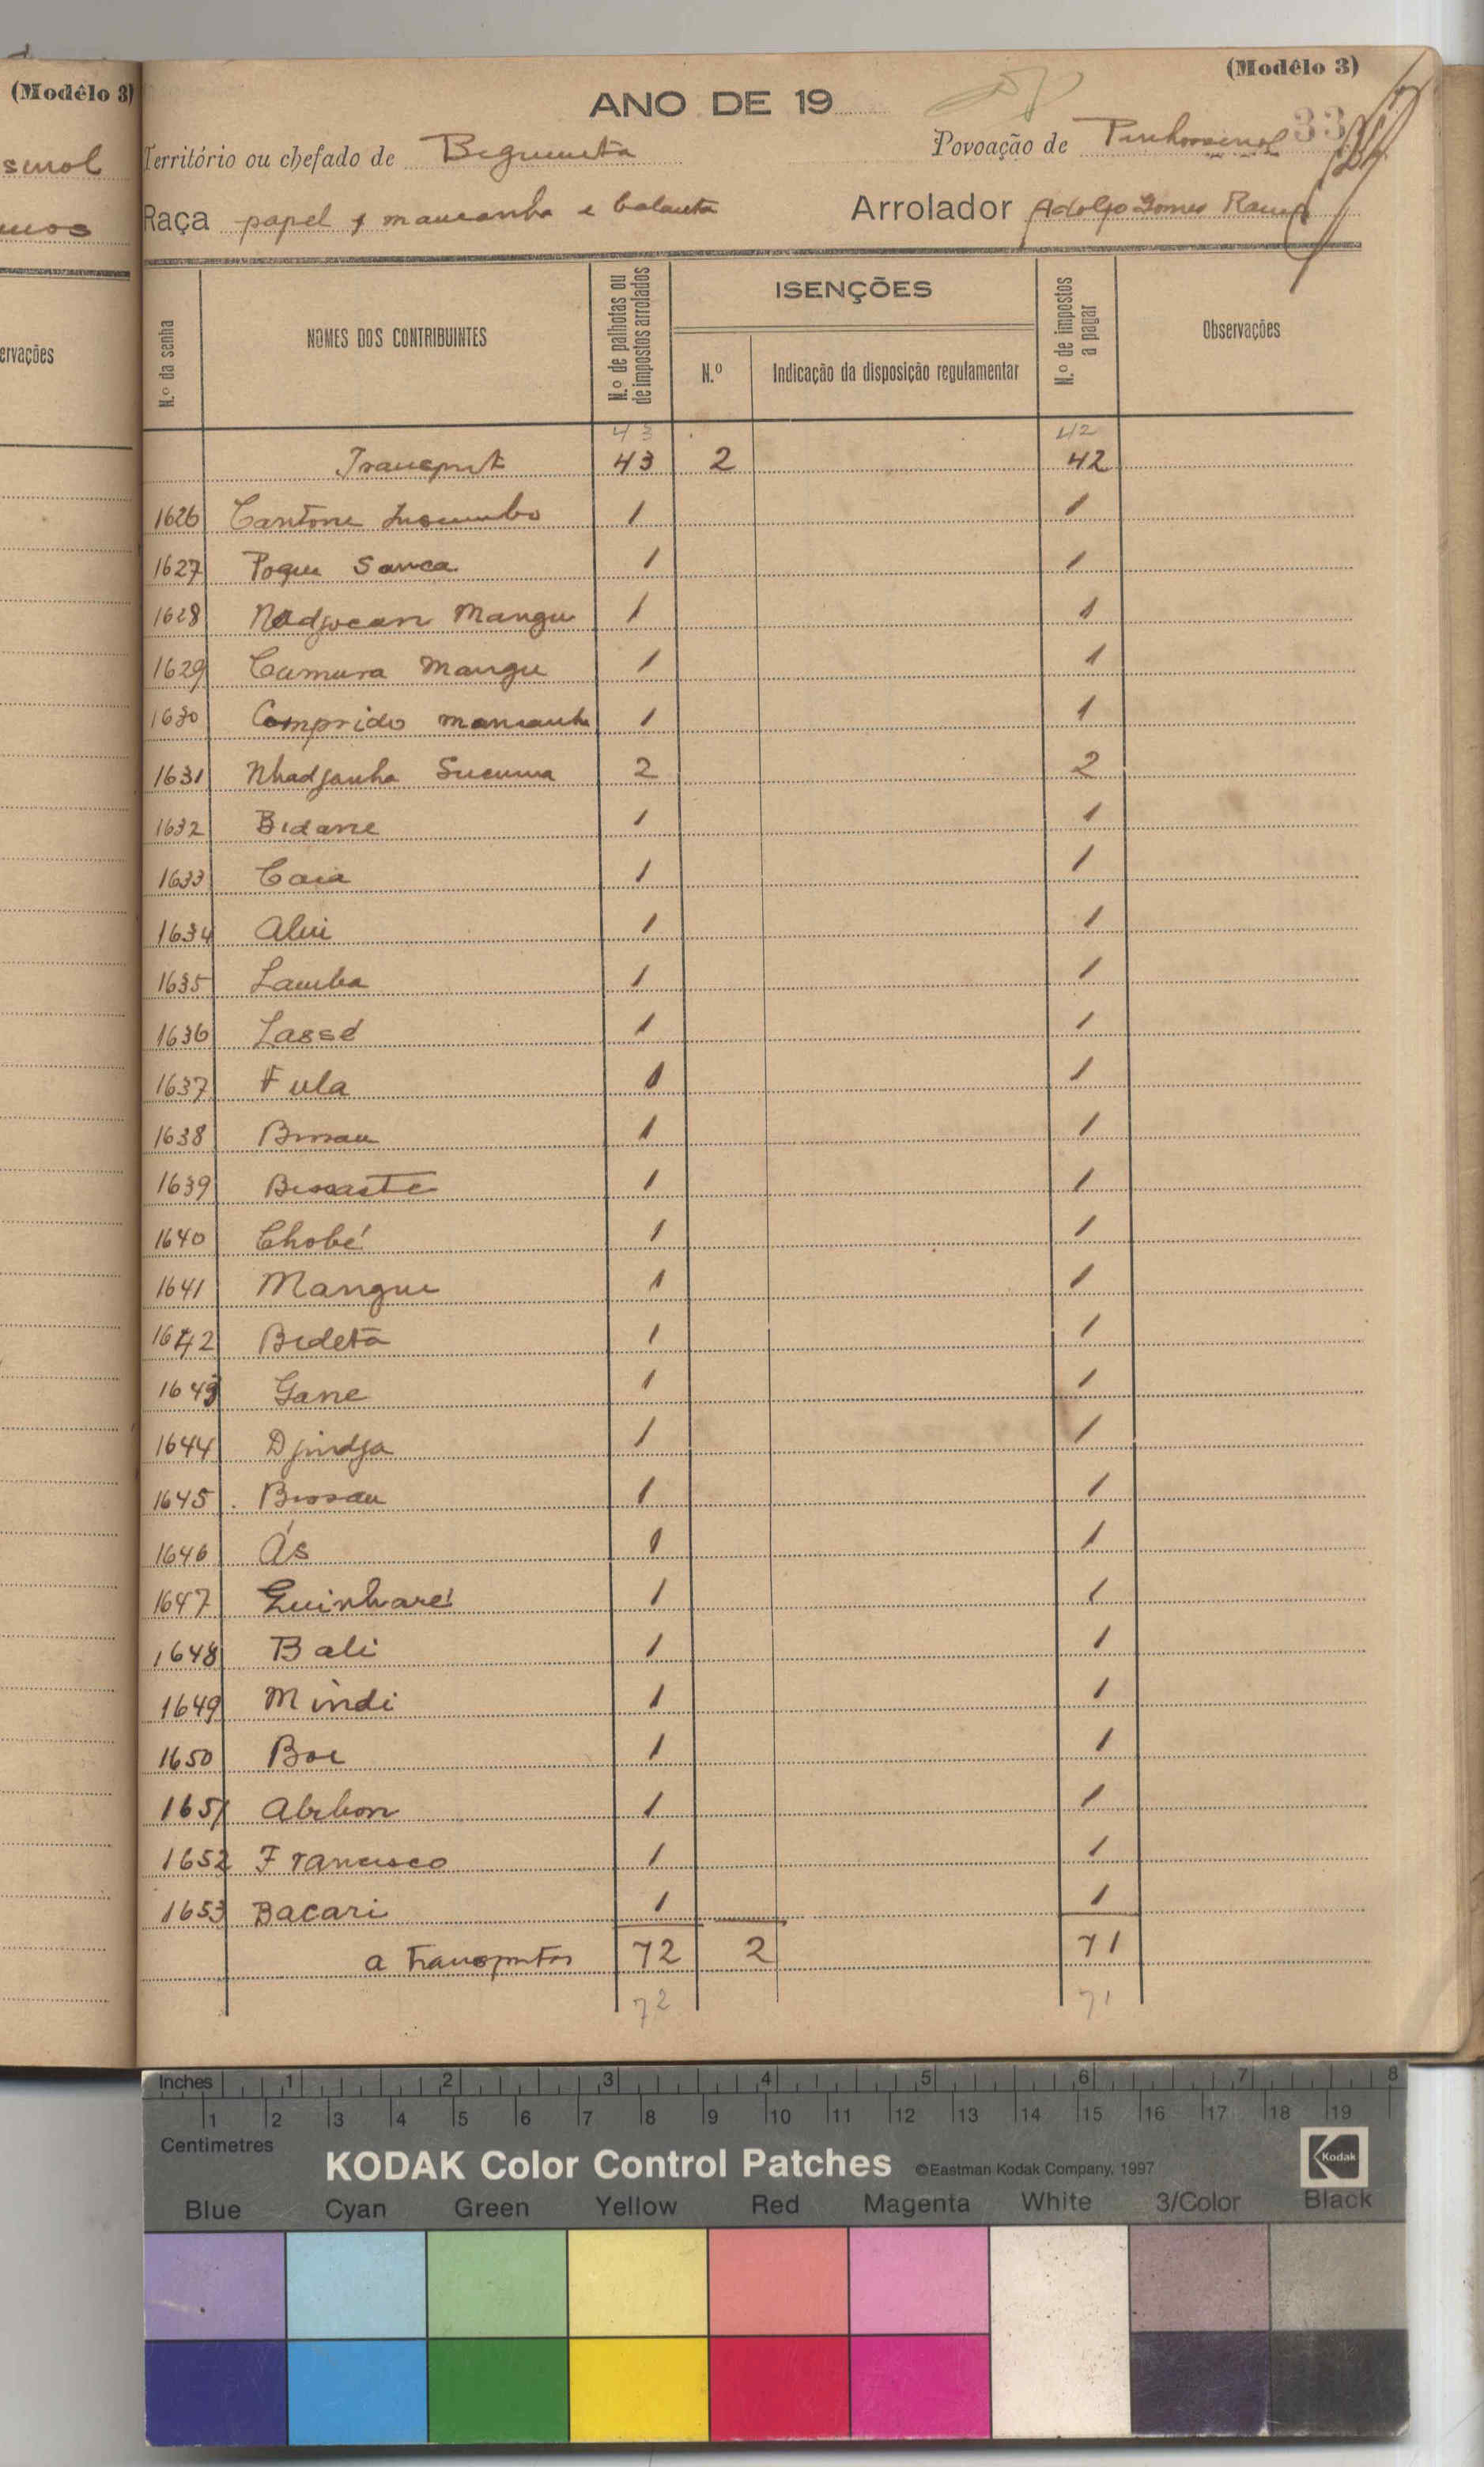 (Modêlo 3)
(Modêlo 3)
ANO DE 19
33
sinol
Território ou chefado de Biguimita
Povoação de
Raça papel, mancanha e balanta
Arrolador Adolfo Gomes Ramos
ervações
N.º da senha
NOMES DOS CONTRIBUINTES
N.º de palhotas ou de impostos arrolados
ISENÇÕES
N.º
Indicação da disposição regulamentar
N.º de impostos a pagar
Observações
43 42
Transporte 43 2 42
1626 Cantone 1 1
1627 Poque Sanca 1 1
1628 Nadjocan Mangu 1 1
1629 Camura Mangu 1 1
1630 Comprido mancanha 1 1
1631 Nhadjanha Sucuma 2 2
1632 Bidane 1 1
1633 Caia 1 1
1634 Alui 1 1
1635 Lamba 1 1
1636 Lassé 1 1
1637 Fula 1 1
1638 Bissau 1 1
1639 1 1
1640 Chobé 1 1
1641 Mangui 1 1
1642 Bideta 1 1
1643 Gane 1 1
1644 Djindja 1 1
1645 Bissau 1 1
1646 Ás 1 1
1647 Quinharé 1 1
1648 Bali 1 1
1649 Mindi 1 1
1650 Boe 1 1
1651 Abibon 1 1
1652 Francisco 1 1
1653 Bacari 1 1
a Transportar 72 2 71
72 71
Inches 1 2 3 4 5 6 7 8
1 2 3 4 5 6 7 8 9 10 11 12 13 14 15 16 17 18 19
Centimetres
KODAK Color Control Patches ©Eastman Kodak Company, 1997 Kodak
Blue Cyan Green Yellow Red Magenta White 3/Color Black